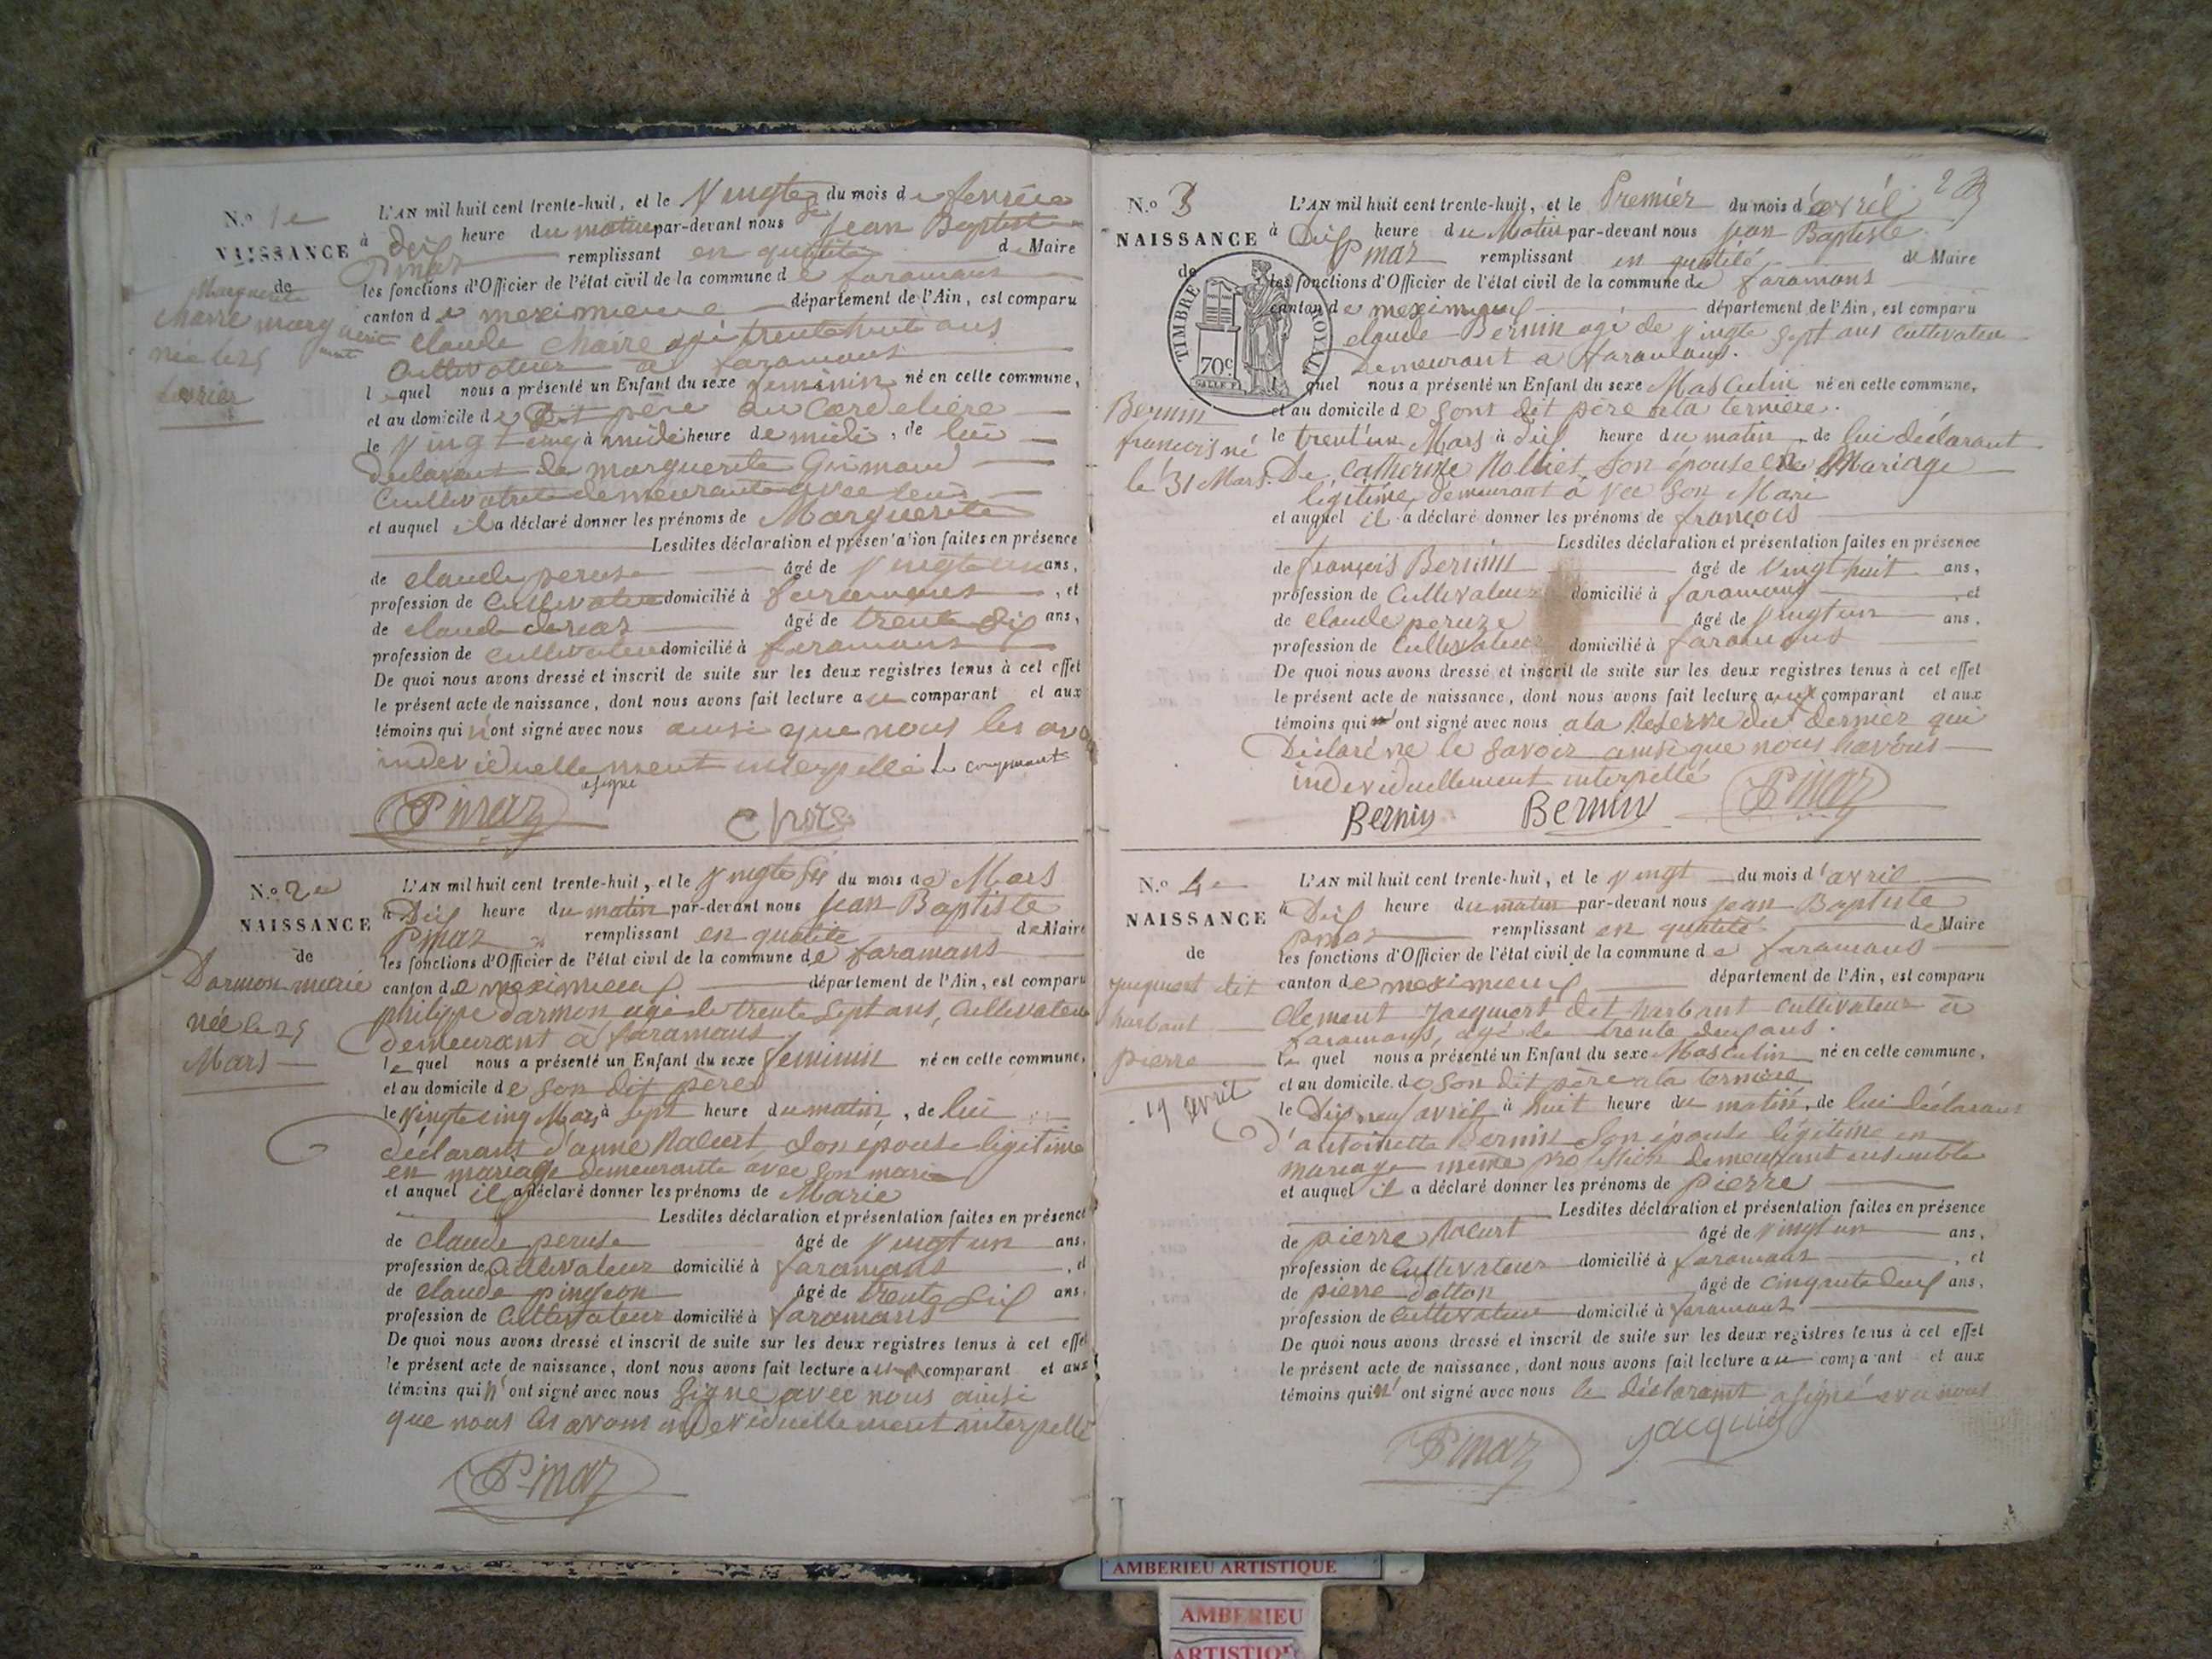 N.º 1e
NAISSANCE
de
Marguerite
née le 25
L'AN mil huit cent trente-huit, et le Vingt six du mois de fevrier
à dix heure du matin par-devant nous jean Baptiste
Pinaz remplissant en qualité de Maire
les fonctions d'Officier de l'état civil de la commune de faramans
canton de meximieux département de l'Ain, est comparu
claude agé trente huit ans
Cultivateur a faramans
lequel nous a présenté un Enfant du sexe feminin né en cette commune,
et au domicile de dit père au Cordeliere
le Vingt cinq à midi heure de midi, de lui
declarant de marguerite Grimaud
Cultivatrice demeurante avec lui
et auquel il a déclaré donner les prénoms de Marguerite
Lesdites déclaration et présentation faites en présence
de claude peruse âgé de Vingt un ans,
profession de Cultivateur domicilié à faramans, et
de claude âgé de trente dix ans,
profession de cultivateur domicilié à faramans
De quoi nous avons dressé et inscrit de suite sur les deux registres tenus à cet effet
le présent acte de naissance, dont nous avons fait lecture au comparant et aux
témoins qui n'ont signé avec nous ainsi que nous les avons
individuellement interpellé le comparant
a signé
Pinaz
N.º 2e
NAISSANCE
de
Darmon marie
née le 25
Mars
L'AN mil huit cent trente-huit, et le Vingte six du mois de Mars
à Dix heure du matin par-devant nous jean Baptiste
Pinaz remplissant en qualité de Maire
les fonctions d'Officier de l'état civil de la commune de faramans
canton de meximieux département de l'Ain, est comparu
philippe darmon agé de trente sept ans, Cultivateur
demeurant à faramans
lequel nous a présenté un Enfant du sexe feminin né en cette commune,
et au domicile de son dit père
le Vingte cinq Mars à sept heure du matin, de lui
déclarant d'anne son epouse legitime
en mariage demeurante avec son mari
et auquel il a déclaré donner les prénoms de Marie
Lesdites déclaration et présentation faites en présence
de claude peruse âgé de Vingt un ans,
profession de Cultivateur domicilié à faramans, et
de claude pingeon âgé de trente six ans,
profession de Cultivateur domicilié à faramans
De quoi nous avons dressé et inscrit de suite sur les deux registres tenus à cet effet
le présent acte de naissance, dont nous avons fait lecture aux comparant et aux
témoins qui n'ont signé avec nous signe avec nous ainsi
que nous les avons individuellement interpellé
Pinaz
N.º 3
NAISSANCE
de
TIMBRE ROYAL
70c
Bernin
francois né
le 31 Mars.
L'AN mil huit cent trente-huit, et le Premier du mois d'avril
à Dix heure du Matin par-devant nous jean Baptiste
Pinaz remplissant en qualité de Maire
les fonctions d'Officier de l'état civil de la commune de faramans
canton de meximieux département de l'Ain, est comparu
claude Bernin agé de Vingte sept ans Cultivateur
Demeurant a faramans.
lequel nous a présenté un Enfant du sexe Masculin né en cette commune,
et au domicile de sont dit père a la terniere.
le trent'un Mars à dix heure du matin, de lui déclarant
De Catherine son épouse en Mariage
légitime, demeurant à vec son Mari
et auquel il a déclaré donner les prénoms de françois
Lesdites déclaration et présentation faites en présence
de françois Bernin âgé de Vingt huit ans,
profession de Cultivateur domicilié à faramans, et
de claude peruze âgé de Vingt un ans,
profession de Cultivateur domicilié à faramans
De quoi nous avons dressé et inscrit de suite sur les deux registres tenus à cet effet
le présent acte de naissance, dont nous avons fait lecture aux comparant et aux
témoins qui ont signé avec nous a la Reserve du dernier qui
Déclaré ne le savoir ainsi que nous l'avons
individuellement interpellé
Bernin Bernin Pinaz
N.º 4e
NAISSANCE
de
jacquemet dit
harbant
pierre
19 avril
L'AN mil huit cent trente-huit, et le Vingt du mois d'avril
à Dix heure du matin par-devant nous jean Baptiste
Pinaz remplissant en qualité de Maire
les fonctions d'Officier de l'état civil de la commune de faramans
canton de meximieux département de l'Ain, est comparu
Clement dit harbant cultivateur à
faramans, agé de trente deux ans.
lequel nous a présenté un Enfant du sexe Masculin né en cette commune,
et au domicile de son dit père a la terniere
le Dix neuf avril à huit heure du matin, de lui déclarant
D'antoinette Bernin son épouse légitime en
mariage même profession demeurant ensemble
et auquel il a déclaré donner les prénoms de pierre
Lesdites déclaration et présentation faites en présence
de pierre âgé de Vingt un ans,
profession de Cultivateur domicilié à faramans, et
de pierre dotton âgé de cinquante deux ans,
profession de Cultivateur domicilié à faramans
De quoi nous avons dressé et inscrit de suite sur les deux registres tenus à cet effet
le présent acte de naissance, dont nous avons fait lecture au comparant et aux
témoins qui n'ont signé avec nous le déclarant a signé avec nous
Pinaz
AMBERIEU ARTISTIQUE
AMBERIEU